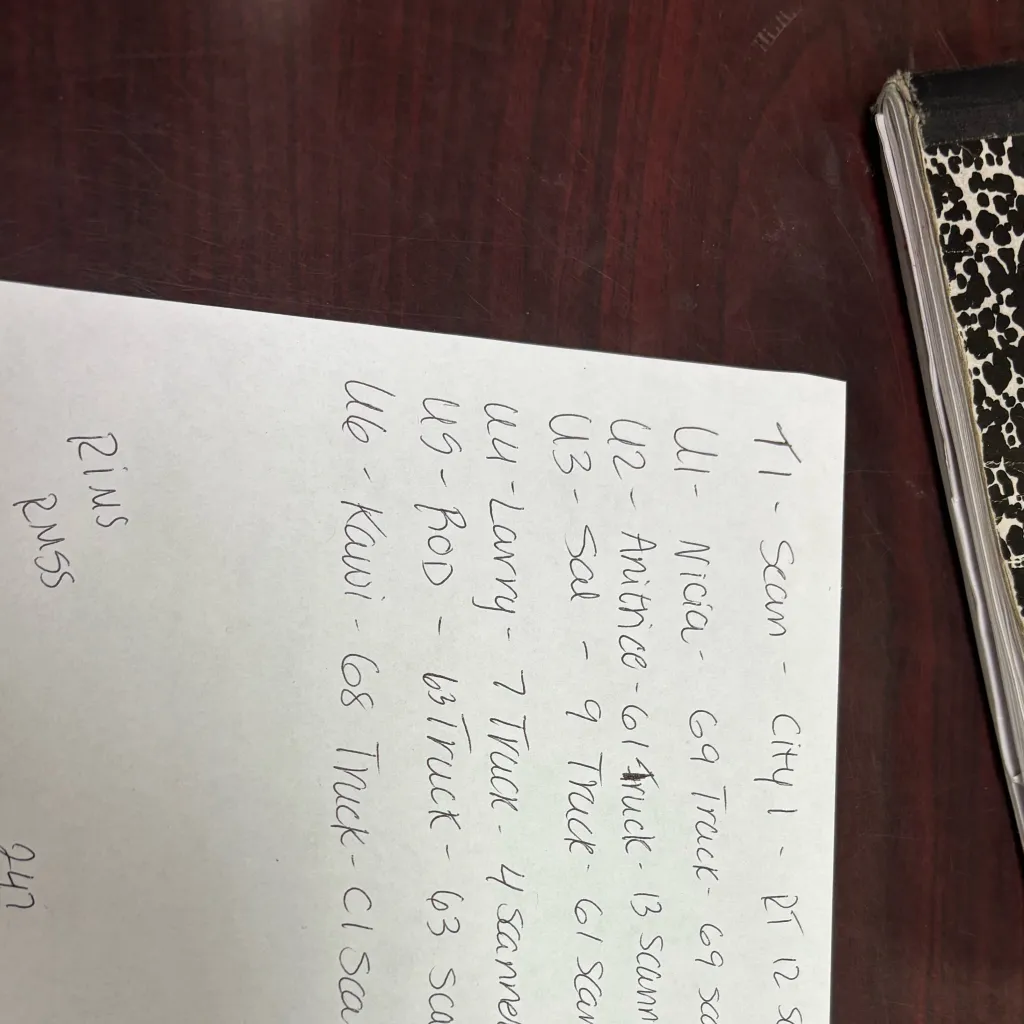 T1 - Sean - City 1 - RT 12 sc
U1 - Nicia - 69 Truck - 69 sc
U2 - Anitrice - 61 Truck - 13 scann
U3 - Sal - 9 Truck - 61 scan
U4 - Larry - 7 Truck - 4 scanne
U5 - ROD - 63 Truck - 63 sca
U6 - Kawi - 68 Truck - C1 Sca
PiNS
RMSS
247